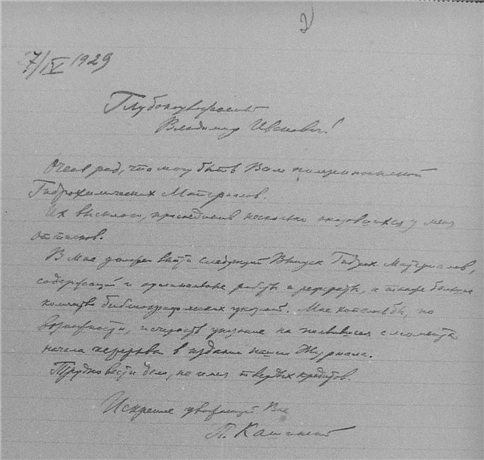 2
7/IV 1929
Глубокоуважаемый
Владимир Иванович!
Очень рад, что могу быть Вам полезен посылкой
Гидрохимических Материалов.
Их высылаю, присоединив несколько оказавшихся у меня
оттисков.
В мае должен выйти следующий выпуск Гидрох Материалов,
содержащий и оригинальные работы и рефераты, а также большое
количество библиографических указаний. Мне хотелось бы, по
возможности, исчерпать указания на появившиеся с момента
начала перерыва в издании нашего Журнала.
Трудно вести дело, не имея твердых кредитов.
Искренне уважающий Вас
П. Кашинский